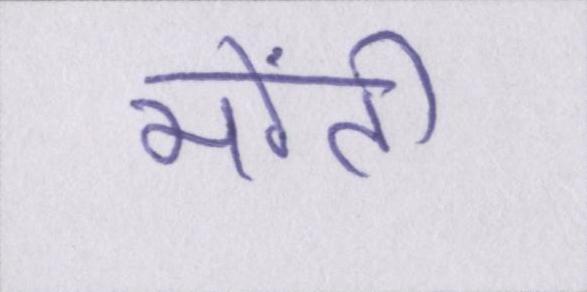 मोंती